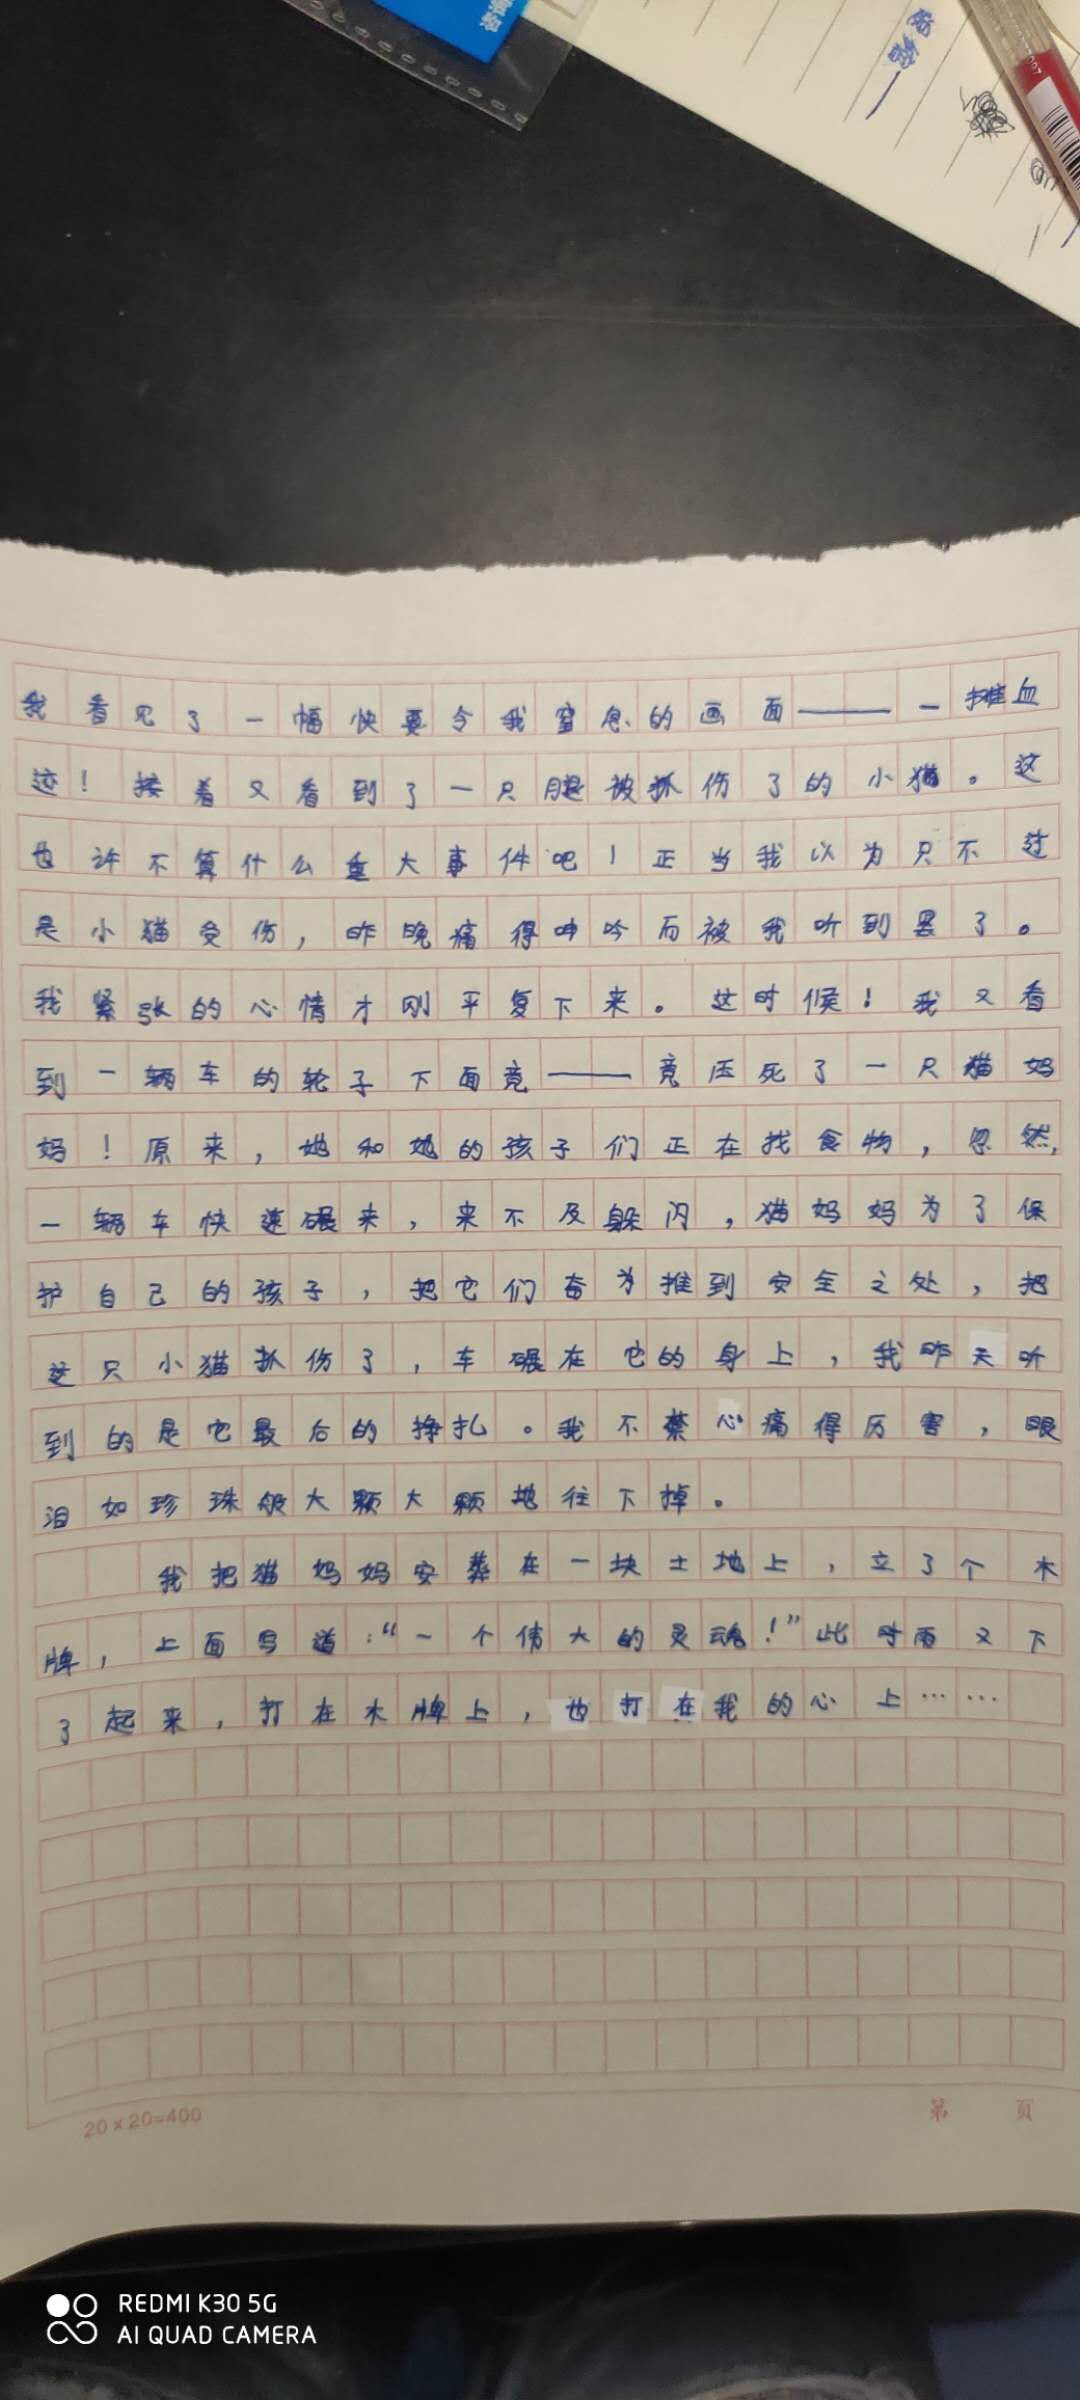 我看见了一幅快要令我窒息的画面——一摊血
迹！接着又看到了一只腿被抓伤了的小猫。这
也许不算什么重大事件吧！正当我以为只不过
是小猫受伤，昨晚痛得呻吟而被我听到罢了。
我紧张的心情才刚平复下来。这时候！我又看
到一辆车的轮子下面竟——竟压死了一只猫妈
妈！原来，她和她的孩子们正在找食物，忽然，
一辆车快速碾来，来不及躲闪，猫妈妈为了保
护自己的孩子，把它们奋为推到安全之处，把
这只小猫抓伤了，车碾在它的身上，我昨天听
到的是它最后的挣扎。我不禁心痛得厉害，眼
泪如珍珠般大颗大颗地往下掉。
我把猫妈妈安葬在一块土地上，立了个木
牌，上面写道：“一个伟大的灵魂！”此时雨又下
了起来，打在木牌上，也打在我的心上……
20×20=400
第 页
REDMI K30 5G
AI QUAD CAMERA